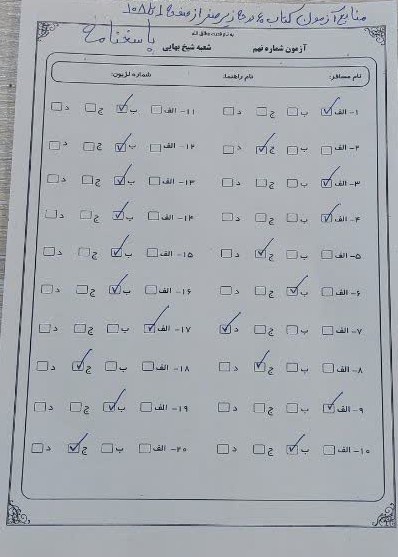 منابع آزمون کتاب ۶۰ درجه زیر صفر از صفحه ۱ تا ۱۰۸
پاسخنامه
به نام قدرت مطلق الله
آزمون شماره نهم شعبه شیخ بهایی
نام مسافر: نام راهنما: شماره لژیون:
۱- الف ب ج د ۱۱- الف ب ج د
۲- الف ب ج د ۱۲- الف ب ج د
۳- الف ب ج د ۱۳- الف ب ج د
۴- الف ب ج د ۱۴- الف ب ج د
۵- الف ب ج د ۱۵- الف ب ج د
۶- الف ب ج د ۱۶- الف ب ج د
۷- الف ب ج د ۱۷- الف ب ج د
۸- الف ب ج د ۱۸- الف ب ج د
۹- الف ب ج د ۱۹- الف ب ج د
۱۰- الف ب ج د ۲۰- الف ب ج د